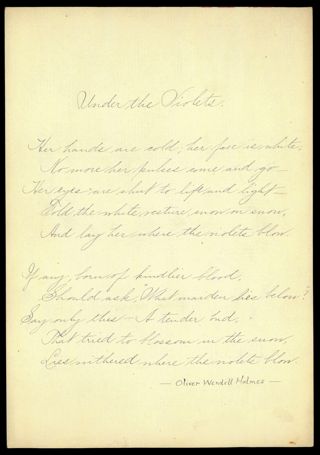 Under the Violets.
Her hands are cold; her face is white;
No more her pulses come and go—
Her eyes are shut to life and light—
Fold the white vesture, snow on snow,
And lay her where the violets blow.
If any, born of kindlier blood,
Should ask, What maiden lies below?
Say only this— A tender bud,
That tried to blossom in the snow,
Lies withered where the violets blow.
— Oliver Wendell Holmes —